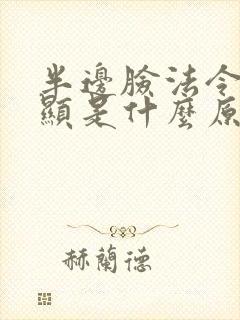 半邊臉法令
顯是什麼原
赫蘭德